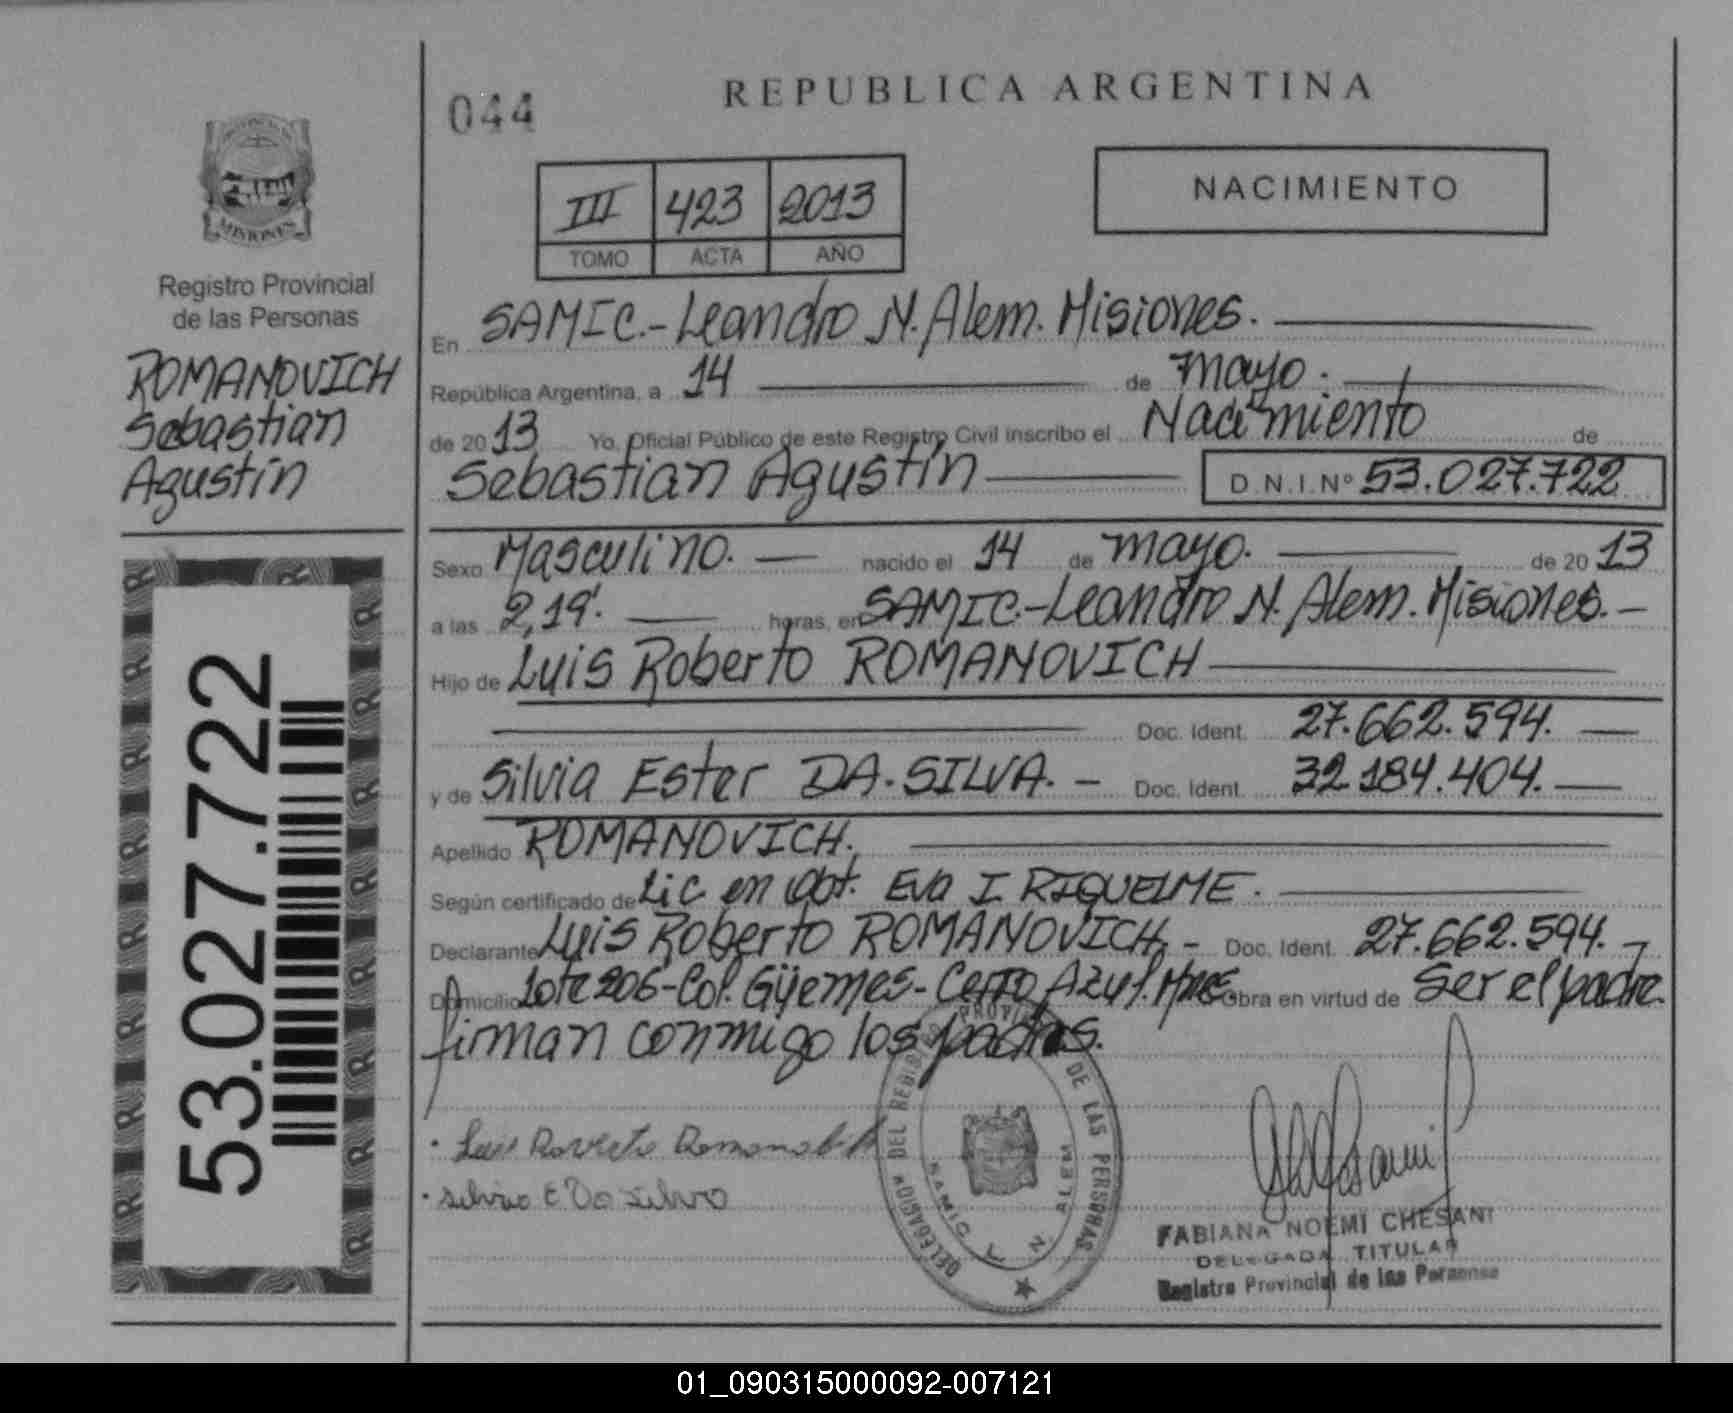 044
REPUBLICA ARGENTINA
III 423 2013
TOMO ACTA AÑO
NACIMIENTO
PROVINCIA DE
MISIONES
Registro Provincial
de las Personas
ROMANOVICH
Sebastian
Agustín
53.027.722
En SAMIC.-Leandro N. Alem. Misiones.
República Argentina, a 14 de mayo.
de 2013 Yo, Oficial Público de este Registro Civil inscribo el Nacimiento de
Sebastian Agustín D.N.I.Nº 53.027.722
Sexo Masculino. nacido el 14 de mayo. de 2013
a las 2,19'. horas, en SAMIC.-Leandro N. Alem. Misiones.
Hijo de Luis Roberto ROMANOVICH
Doc. Ident. 27.662.594.
y de Silvia Ester DA.SILVA. Doc. Ident. 32.184.404.
Apellido ROMANOVICH.
Según certificado de Lic en Obt. Eva I RIQUELME.
Declarante Luis Roberto ROMANOVICH. Doc. Ident. 27.662.594.
Domicilio Lote 206-Col. Güemes-Cerro Azul. Mnes Obra en virtud de Ser el padre
firman conmigo los padres.
Luis Rovreto
silvia E Da silva
DELEGACION DEL REGISTRO PROVINCIAL DE LAS PERSONAS
SAMIC L N ALEM
FABIANA NOEMI CHESANI
DELEGADA TITULAR
Registro Provincial de las Personas
01_090315000092-007121